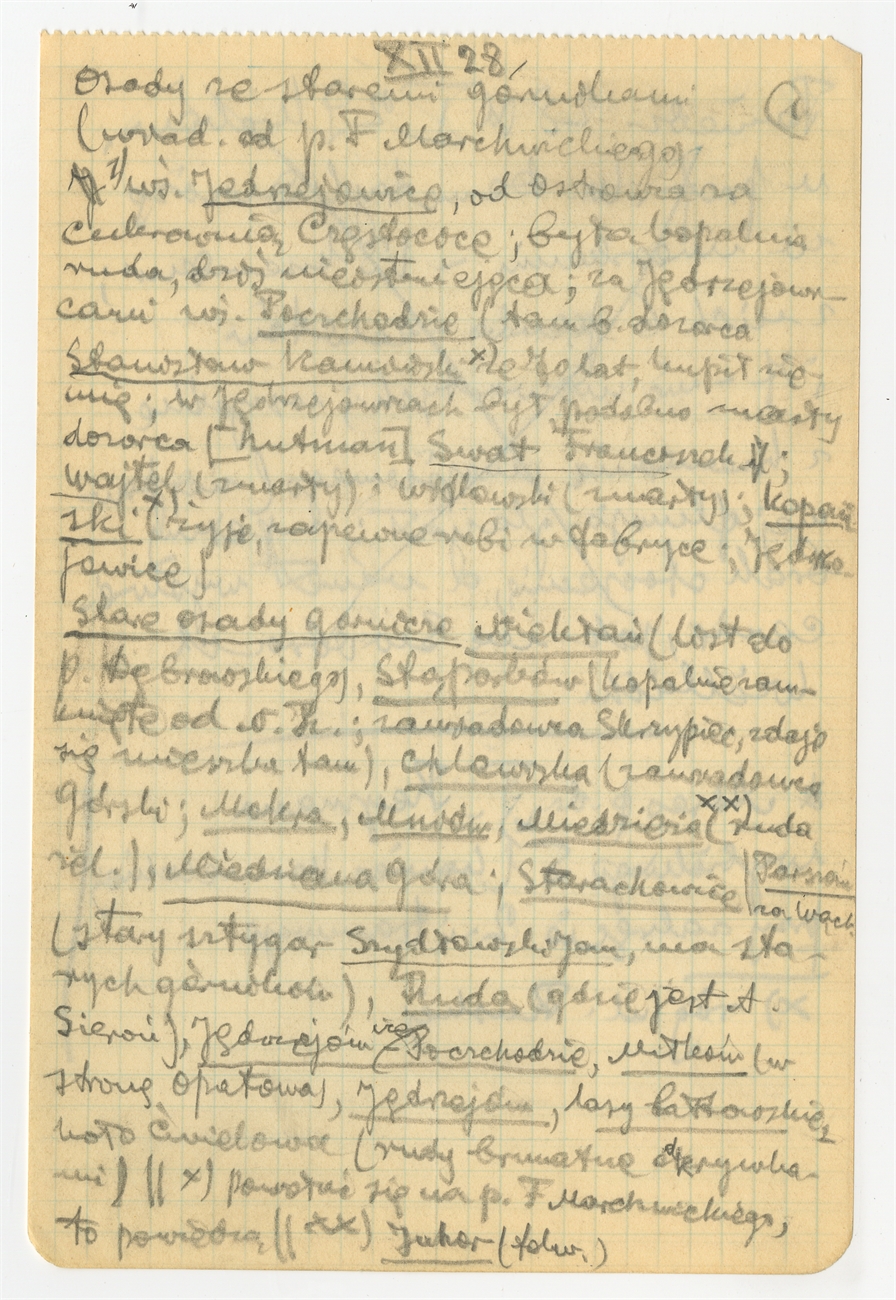 XII 28,
Osady ze staremi górnikami
1
(wiad. od p. F Marchwickiego
1) wś. Jędrzejowice, od Ostrowca za
cukrownią Częstocice; była kopalnia
ruda, dziś nieistniejąca; za Jędrzejow-
cami wś. Poczchodzie (tam b. dozorca
Stanisław Kamiński x) że 70 lat, kupił zie-
mię; w Jędrzejowcach był podobno zmarły
dozorca [hutman] Swat Franciszek;
Wajtek (zmarły) i Widłowski (zmarły); Kopań
ski x) (żyje, zapewne robi w fabryce; Jędrze-
jowice]
Stare osady górnicze Niekłań (list do
p. Dębrowskiego), Stąporków (kopalnie zam-
knięte od r.; zawiadowca Skrzypiec, zdaje
się mieszka tam), Chlewiska (zawiadowca
Górski; Mokra, Mniów, Miedzierza xx) (ruda
żel.), Miedziana Góra; Starachowice
Parszów
za Wąch.
(stary sztygar Szydłowski Jan, ma sta-
rych górników), Ruda (gdzie jest A.
Sieroń), Jędrzejowice Poczchodzie, Mitków (w
stronę Opatowa), Jędrzejów, lasy bałtowskie,
koło Ćmielowa (rudy brunatne odkrywka-
mi) || x) powołać się na p. F Marchwickiego,
to powiedzą || xx) Juhor (folw.)